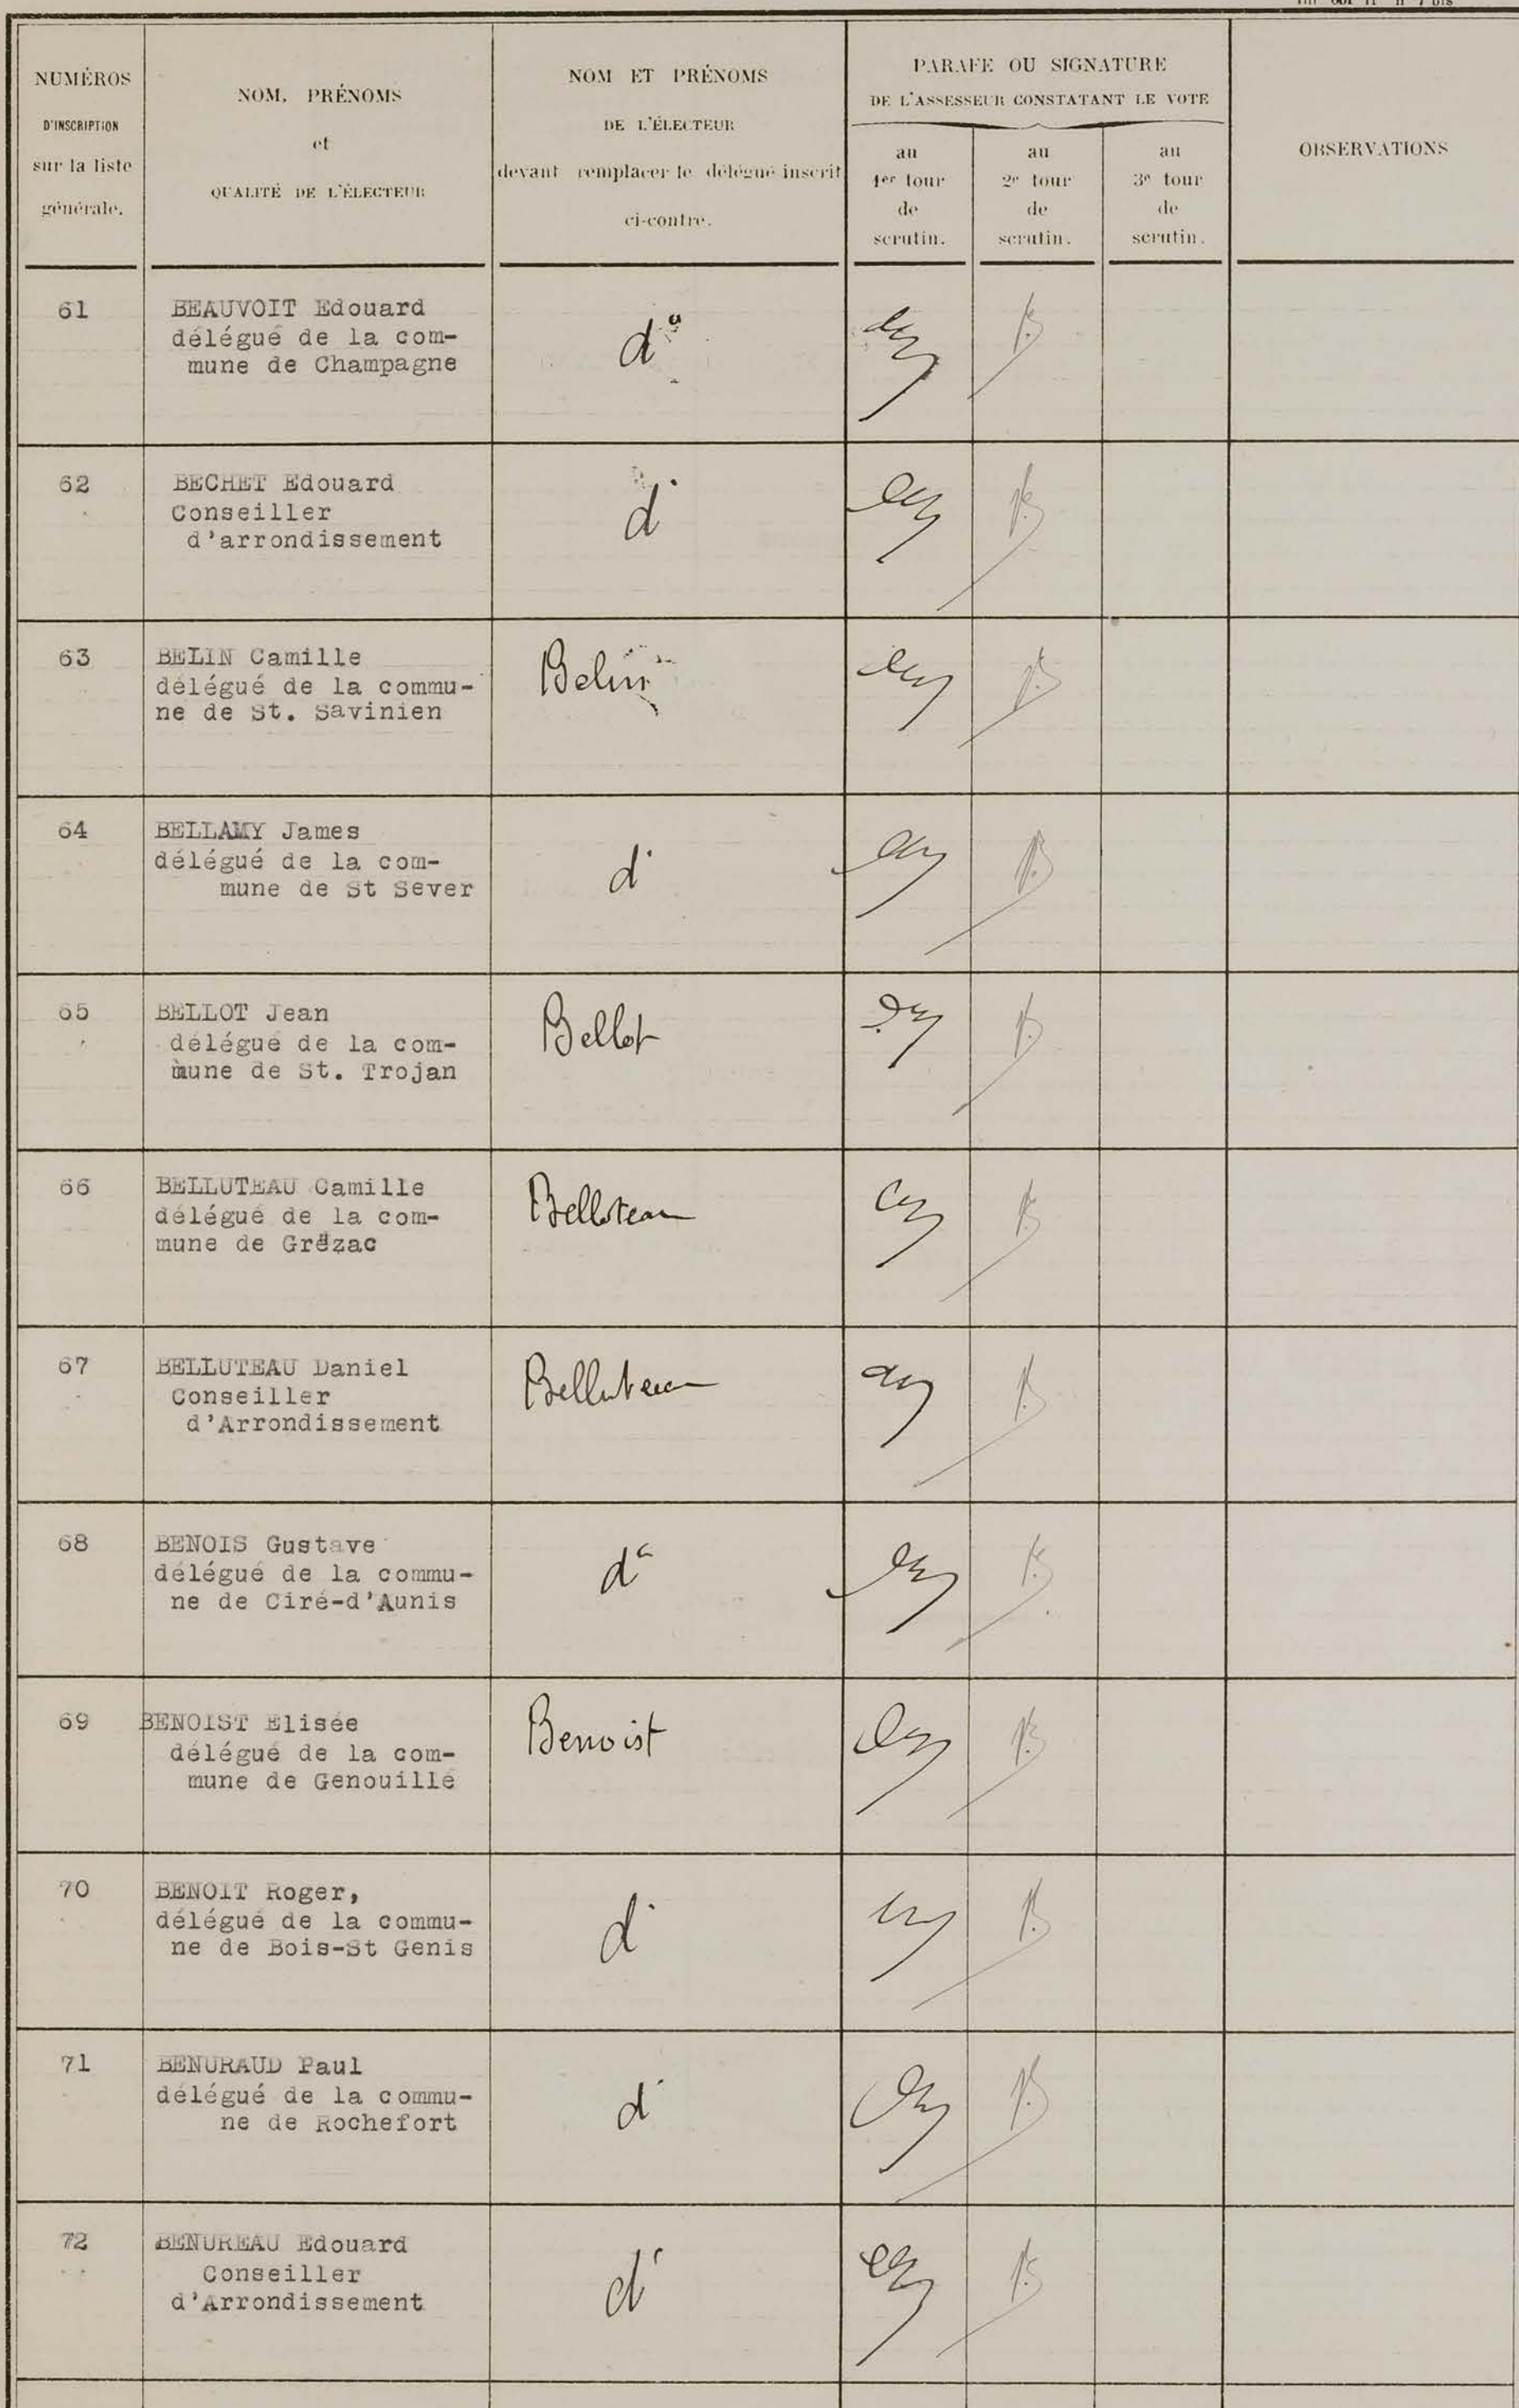 NUMÉROS
D'INSCRIPTION
sur la liste
générale.
NOM, PRÉNOMS
et
QUALITÉ DE L'ÉLECTEUR
NOM ET PRÉNOMS
DE L'ÉLECTEUR
devant remplacer le délégué inscrit
ci-contre.
PARAFE OU SIGNATURE
DE L'ASSESSEUR CONSTATANT LE VOTE
au
1er tour
de
scrutin.
au
2e tour
de
scrutin.
au
3e tour
de
scrutin.
OBSERVATIONS
61
BEAUVOIT Edouard
délégué de la com-
mune de Champagne
do
62
BECHET Edouard
Conseiller
d'arrondissement
do
63
BELIN Camille
délégué de la commu-
ne de St. Savinien
Belin
64
BELLAMY James
délégué de la com-
mune de St Sever
do
65
BELLOT Jean
délégué de la com-
mune de St. Trojan
Bellot
66
BELLUTEAU Camille
délégué de la com-
mune de Grézac
Belloteau
67
BELLUTEAU Daniel
Conseiller
d'Arrondissement
Belluteau
68
BENOIS Gustave
délégué de la commu-
ne de Ciré-d'Aunis
do
69
BENOIST Elisée
délégué de la com-
mune de Genouillé
Benoist
70
BENOIT Roger,
délégué de la commu-
ne de Bois-St Genis
do
71
BENURAUD Paul
délégué de la commu-
ne de Rochefort
do
72
BENUREAU Edouard
Conseiller
d'Arrondissement
do